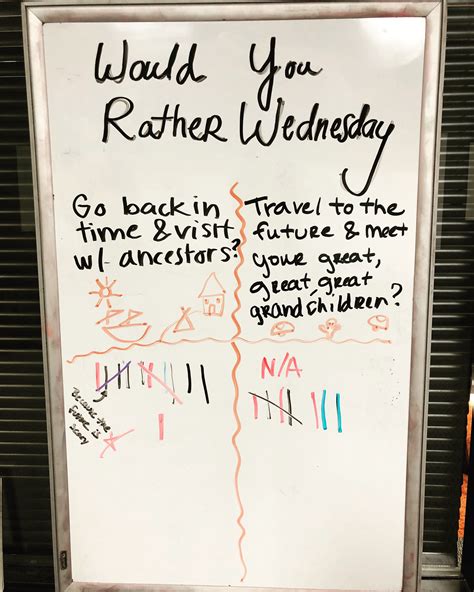 Would You
Rather Wednesday
Go back in
time & visit
w/ ancestors?
Travel to the
future & meet
your great,
great, great
grandchildren?
N/A
Because the
future is
scary